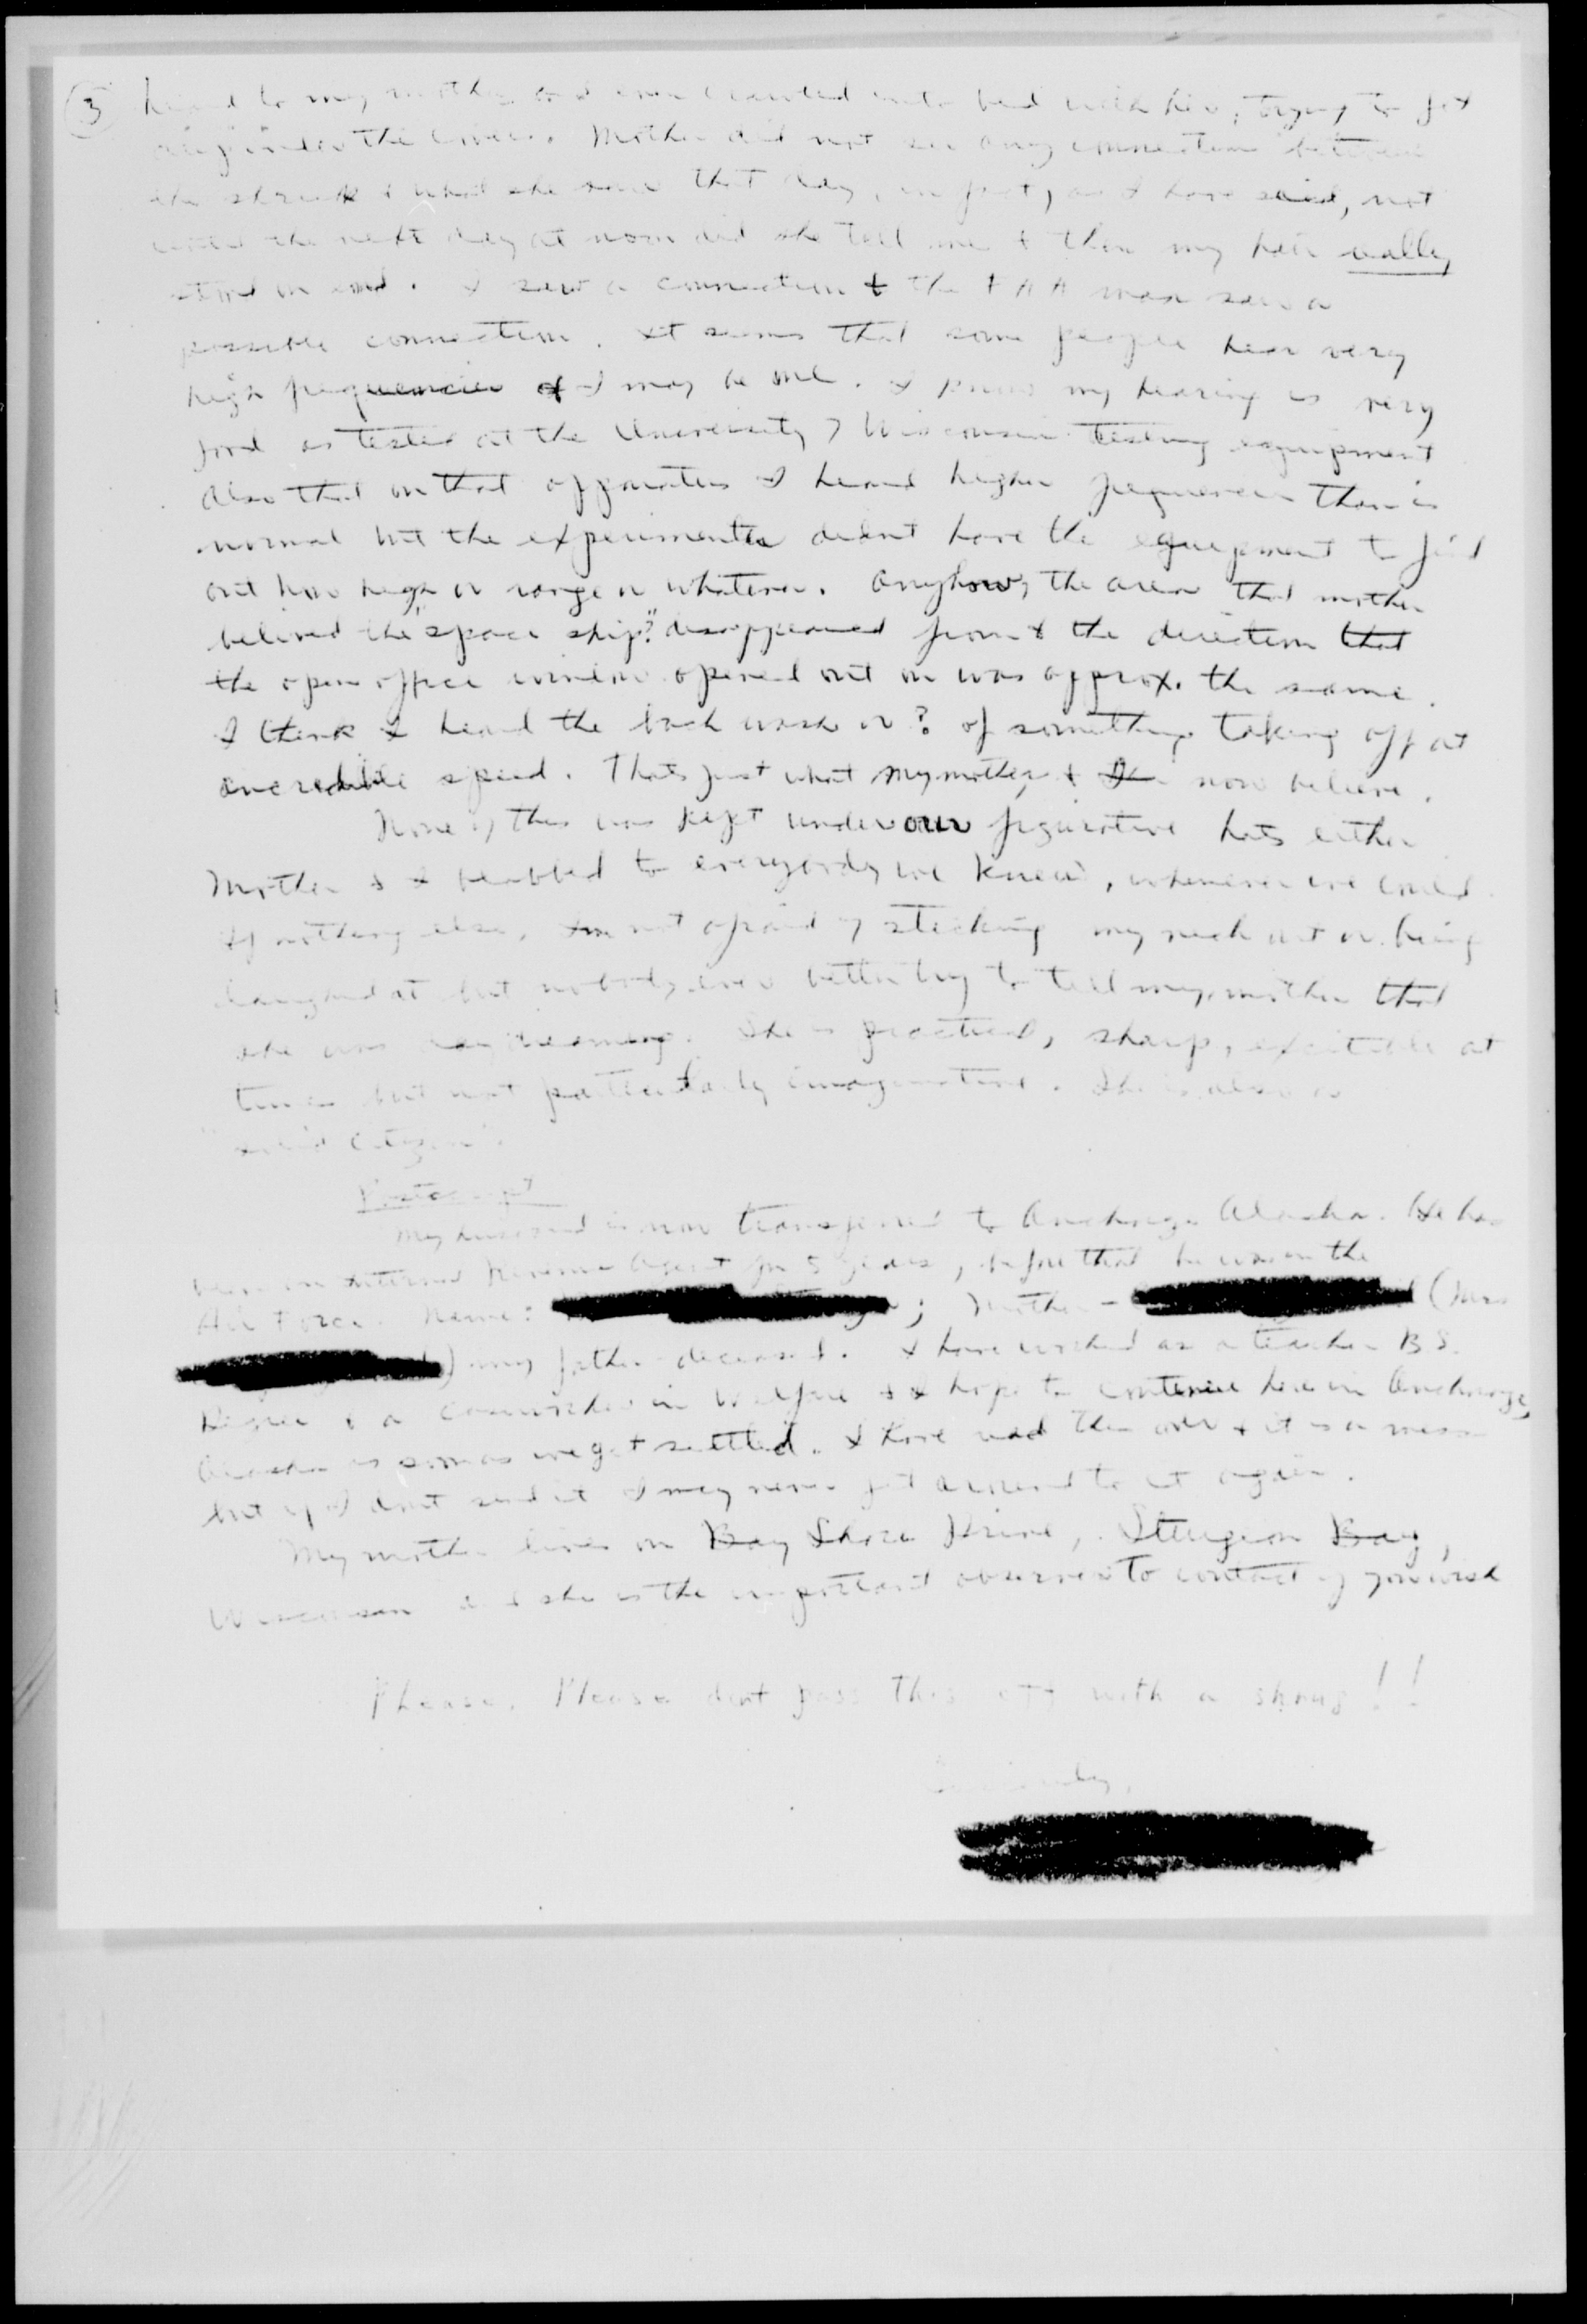 3
to my mother and even crawled into bed with her, trying to get
under the covers. Mother did not see any connection between
the shriek & what she saw that day, in fact, as I have said, not
until the next day at noon did she tell me & then my hair really
stood on end. I saw a connection & the FAA man saw a
possible connection. It seems that some people hear very
high frequencies & I may be one. I know my hearing is very
good as tested at the University of Wisconsin testing equipment
Also that on that apparatus I heard higher frequencies than is
normal but the experimenter didnt have the equipment to find
out how high or range or whatever. Anyhow, the area that mother
belived the "space ship?" disappeared from & the direction that
the open office window opened out on was approx. the same.
I think I heard the back wash or? of something taking off at
incredible speed. Thats just what my mother & I now believe.
None of this was kept under our figurative hats either
Mother & I blabbed to everybody we knew, whenever we could.
If nothing else, Im not afraid of sticking my neck out or being
laughed at but nobody ever better try to tell my mother that
she was dreaming. She is practical, sharp, excitable at
times but not particularly imaginative. She is also a
"solid citizen".
Postscript
My husband is now transferred to Anchorage Alaska. He has
been an Internal Revenue Agent for 5 years, before that he was in the
Air Force. Name: ; Mother - (Mrs
) my father deceased. I have worked as a teacher B.S.
Degree & a caseworker in Welfare & I hope to continue here in Anchorage,
Alaska as soon as we get settled. I have read this over & it is a mess
but if I don't send it I may never get around to it again.
My mother lives on Bay Shore Drive, Sturgeon Bay,
Wisconsin and she is the important observer to contact if you wish
Please, Please dont pass this off with a shrug!!
Sincerely,